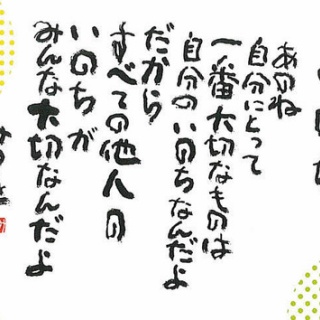 あのね
自分にとって
一番大切なものは
自分のいのちなんだよ
だから
すべての他人の
いのちが
みんな大切なんだよ